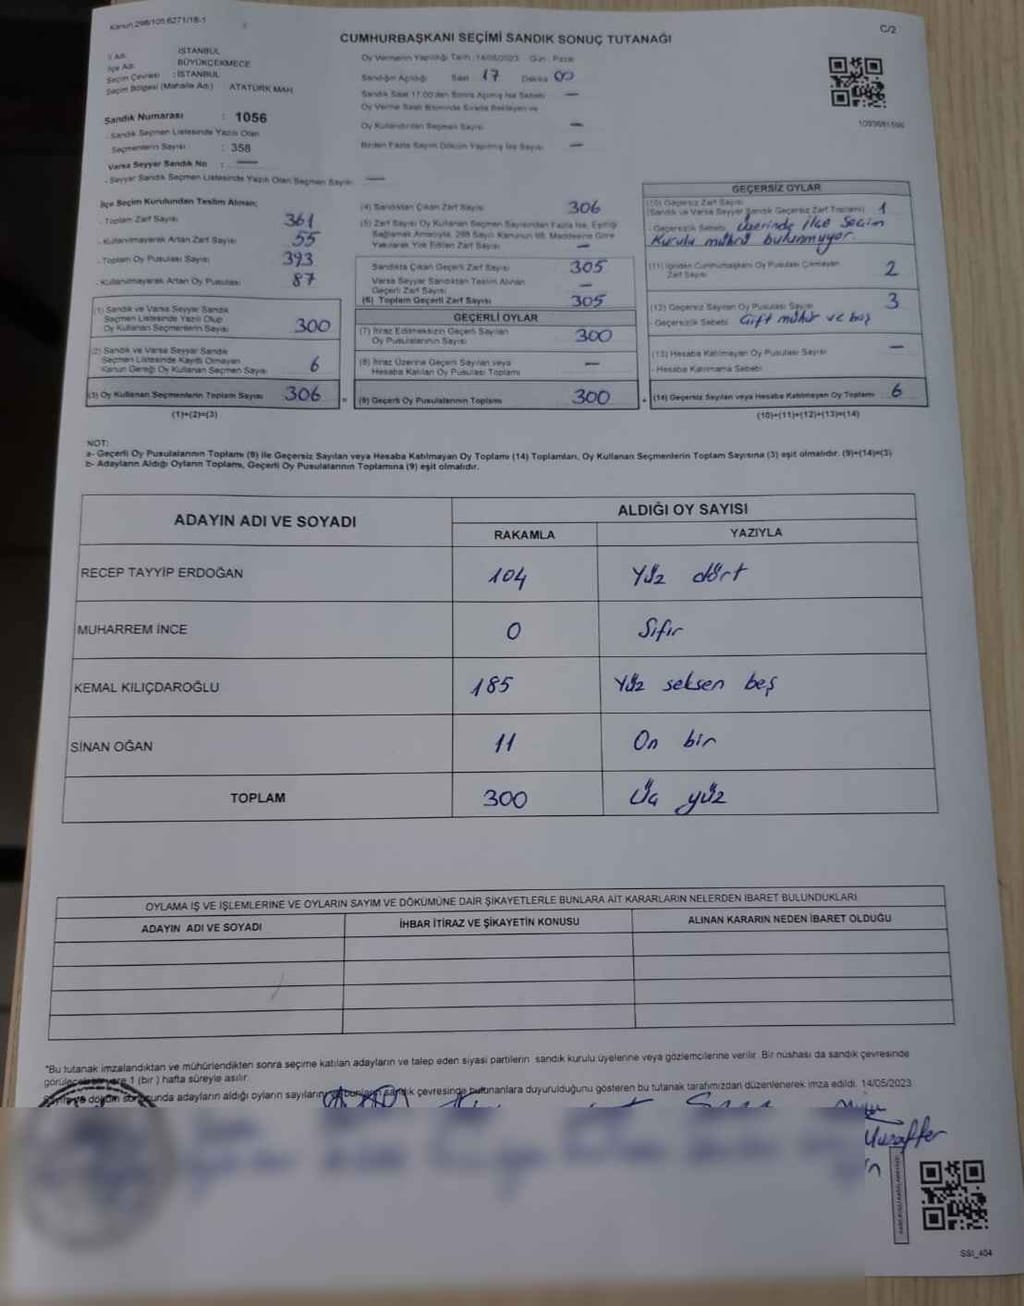 Kanun 298/105 6271/18-1
C/2
CUMHURBAŞKANI SEÇİMİ SANDIK SONUÇ TUTANAĞI
İl Adı : İSTANBUL
İlçe Adı : BÜYÜKÇEKMECE
Seçim Çevresi : İSTANBUL
Seçim Bölgesi (Mahalle Adı) ATATÜRK MAH.
Sandık Numarası : 1056
- Sandık Seçmen Listesinde Yazılı Olan
Seçmenlerin Sayısı : 358
Varsa Seyyar Sandık No : —
- Seyyar Sandık Seçmen Listesinde Yazılı Olan Seçmen Sayısı —
Oy Vermenin Yapıldığı Tarih : 14/05/2023 Gün : Pazar
Sandığın Açıldığı Saat 17 Dakika 00
Sandık Saat 17:00'den Sonra Açılmış İse Sebebi —
Oy Verme Saati Bitiminde Sırada Bekleyen ve
Oy Kullandırılan Seçmen Sayısı —
Birden Fazla Sayım Döküm Yapılmış İse Sayısı —
1093681596
İlçe Seçim Kurulundan Teslim Alınan;
- Toplam Zarf Sayısı 361
- Kullanılmayarak Artan Zarf Sayısı 55
- Toplam Oy Pusulası Sayısı 393
- Kullanılmayarak Artan Oy Pusulası 87
(1) Sandık ve Varsa Seyyar Sandık
Seçmen Listesinde Yazılı Olup
Oy Kullanan Seçmenlerin Sayısı 300
(2) Sandık ve Varsa Seyyar Sandık
Seçmen Listesinde Kayıtlı Olmayan
Kanun Gereği Oy Kullanan Seçmen Sayısı 6
(3) Oy Kullanan Seçmenlerin Toplam Sayısı 306
(1)+(2)=(3)
(4) Sandıktan Çıkan Zarf Sayısı 306
(5) Zarf Sayısı Oy Kullanan Seçmen Sayısından Fazla İse, Eşitliği
Sağlamak Amacıyla, 298 Sayılı Kanunun 98. Maddesine Göre
Yakılarak Yok Edilen Zarf Sayısı —
Sandıkta Çıkan Geçerli Zarf Sayısı 305
Varsa Seyyar Sandıktan Teslim Alınan
Geçerli Zarf Sayısı —
(6) Toplam Geçerli Zarf Sayısı 305
GEÇERLİ OYLAR
(7) İtiraz Edilmeksizin Geçerli Sayılan
Oy Pusulalarının Sayısı 300
(8) İtiraz Üzerine Geçerli Sayılan veya
Hesaba Katılan Oy Pusulası Toplamı —
(9) Geçerli Oy Pusulalarının Toplamı 300
GEÇERSİZ OYLAR
(10) Geçersiz Zarf Sayısı
(Sandık ve Varsa Seyyar Sandık Geçersiz Zarf Toplamı) 1
- Geçersizlik Sebebi üzerinde ilçe Seçim
Kurulu mührü bulunmuyor.
(11) İçinden Cumhurbaşkanı Oy Pusulası Çıkmayan
Zarf Sayısı 2
(12) Geçersiz Sayılan Oy Pusulası Sayısı 3
- Geçersizlik Sebebi Çift mühür ve boş
(13) Hesaba Katılmayan Oy Pusulası Sayısı —
- Hesaba Katılmama Sebebi
(14) Geçersiz Sayılan veya Hesaba Katılmayan Oy Toplamı 6
(10)+(11)+(12)+(13)=(14)
NOT:
a- Geçerli Oy Pusulalarının Toplamı (9) ile Geçersiz Sayılan veya Hesaba Katılmayan Oy Toplamı (14) Toplamları, Oy Kullanan Seçmenlerin Toplam Sayısına (3) eşit olmalıdır. (9)+(14)=(3)
b- Adayların Aldığı Oyların Toplamı, Geçerli Oy Pusulalarının Toplamına (9) eşit olmalıdır.
ADAYIN ADI VE SOYADI
ALDIĞI OY SAYISI
RAKAMLA YAZIYLA
RECEP TAYYİP ERDOĞAN 104 Yüz dört
MUHARREM İNCE 0 Sıfır
KEMAL KILIÇDAROĞLU 185 Yüz seksen beş
SİNAN OĞAN 11 On bir
TOPLAM 300 Üç yüz
OYLAMA İŞ VE İŞLEMLERİNE VE OYLARIN SAYIM VE DÖKÜMÜNE DAİR ŞİKAYETLERLE BUNLARA AİT KARARLARIN NELERDEN İBARET BULUNDUKLARI
ADAYIN ADI VE SOYADI İHBAR İTİRAZ VE ŞİKAYETİN KONUSU ALINAN KARARIN NEDEN İBARET OLDUĞU
*Bu tutanak imzalandıktan ve mühürlendikten sonra seçime katılan adayların ve talep eden siyasi partilerin sandık kurulu üyelerine veya gözlemcilerine verilir. Bir nüshası da sandık çevresinde
görülecek bir yere 1 (bir) hafta süreyle asılır.
Sayım ve döküm sonucunda adayların aldığı oyların sayılarının sandık çevresinde bulunanlara duyurulduğunu gösteren bu tutanak tarafımızdan düzenlenerek imza edildi. 14/05/2023
Muzaffer
SSI_404